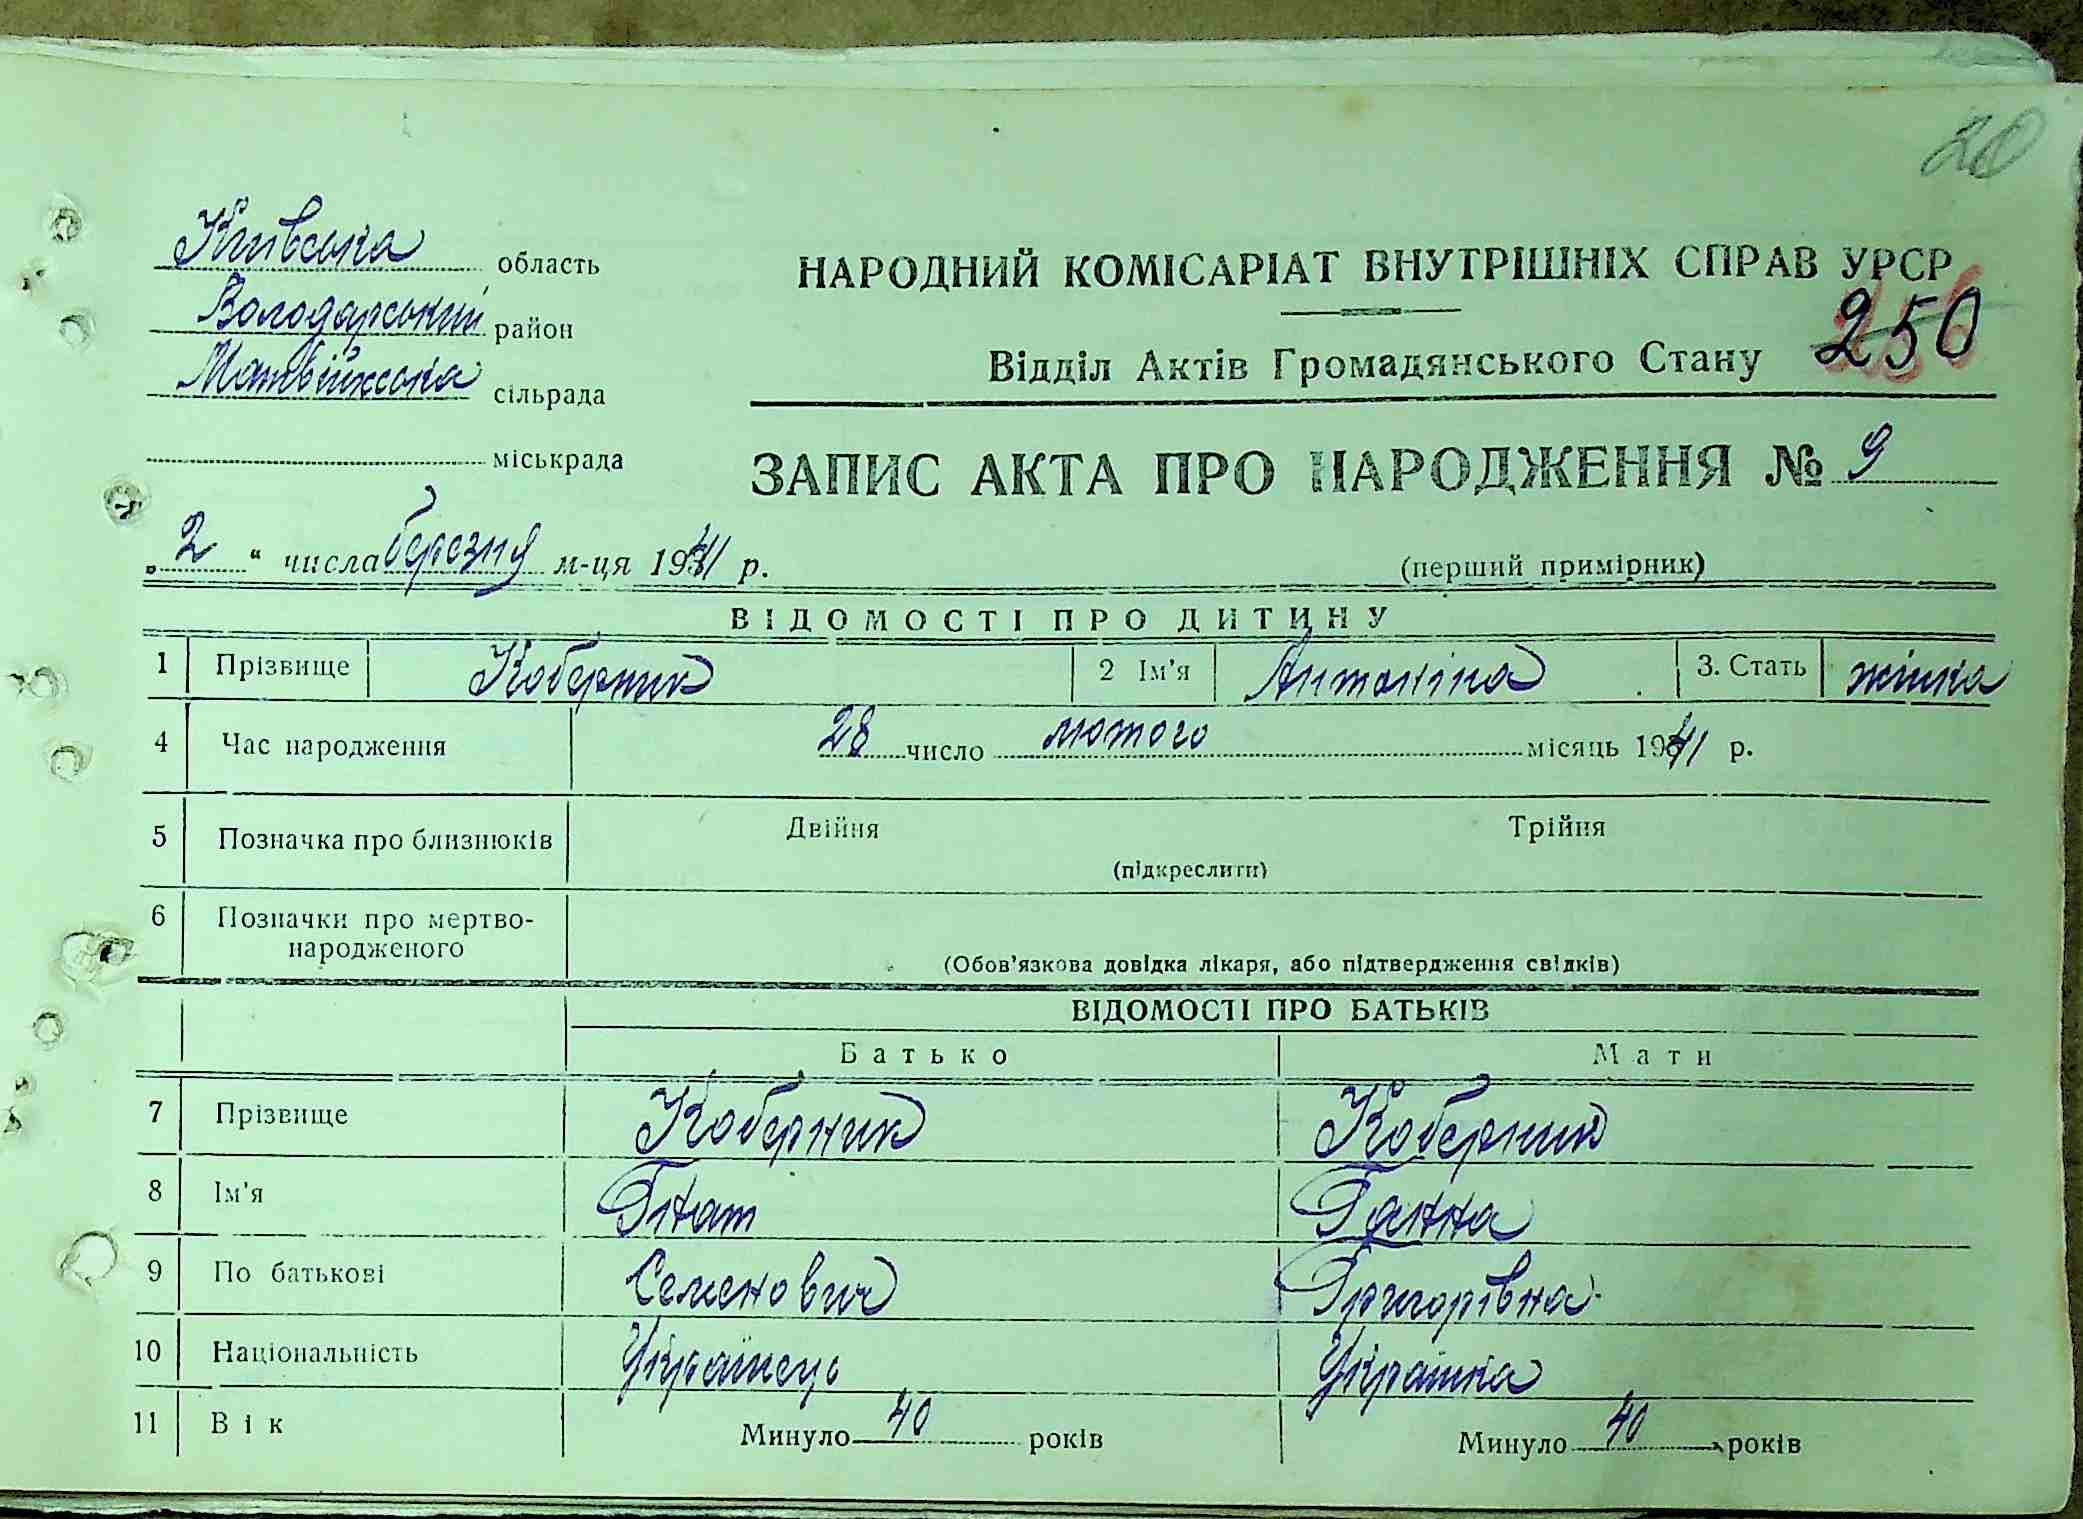 20
Київська область
Володарський район
Матвійхська сільрада
міськрада
НАРОДНИЙ КОМІСАРІАТ ВНУТРІШНІХ СПРАВ УРСР
250
Відділ Актів Громадянського Стану
ЗАПИС АКТА ПРО НАРОДЖЕННЯ № 9
„2“ числа березня м-ця 1941 р.
(перший примірник)
ВІДОМОСТІ ПРО ДИТИНУ
1 Прізвище Коберник 2 Ім'я Антоніна 3. Стать жінка
4 Час народження 28 число лютого місяць 1941 р.
5 Позначка про близнюків Двійня Трійня
(підкреслити)
6 Позначки про мертво-
народженого
(Обов'язкова довідка лікаря, або підтвердження свідків)
ВІДОМОСТІ ПРО БАТЬКІВ
Батько Мати
7 Прізвище Коберник Коберник
8 Ім'я Гнат Ганна
9 По батькові Семенович Григорівна
10 Національність Українець Українка
11 Вік Минуло 40 років Минуло 40 років